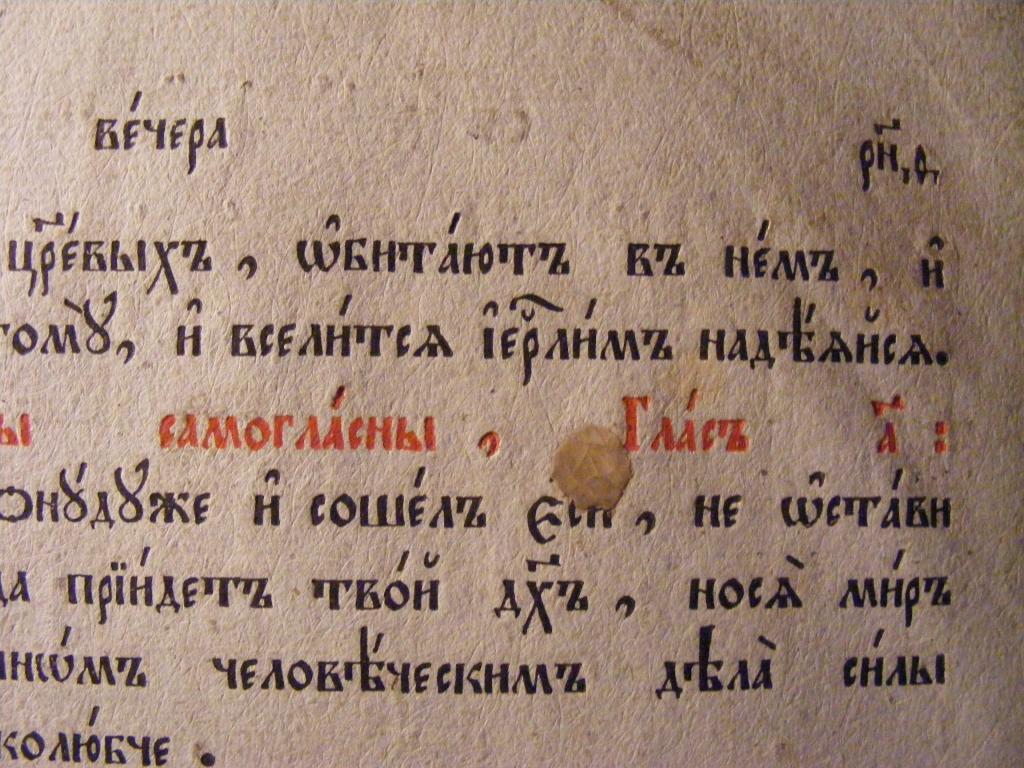 вéчера рн҃,ѳ,
цр҃éвыхъ, ѡ҆битáютъ въ нéмъ, и҆
томꙋ̀, и҆ всели́тсѧ і҆ер҃ли́мъ надѣ́ѧйсѧ.
ы самоглáсны, Глáсъ а҃:
ѻнꙋ́дꙋже и҆ сошéлъ є҆сѝ, не ѡ҆стáви
да прїи́детъ твóй дх҃ъ, носѧ̀ ми́ръ
нѡ́мъ человѣ́ческимъ дѣлà си́лы
колю́бче.